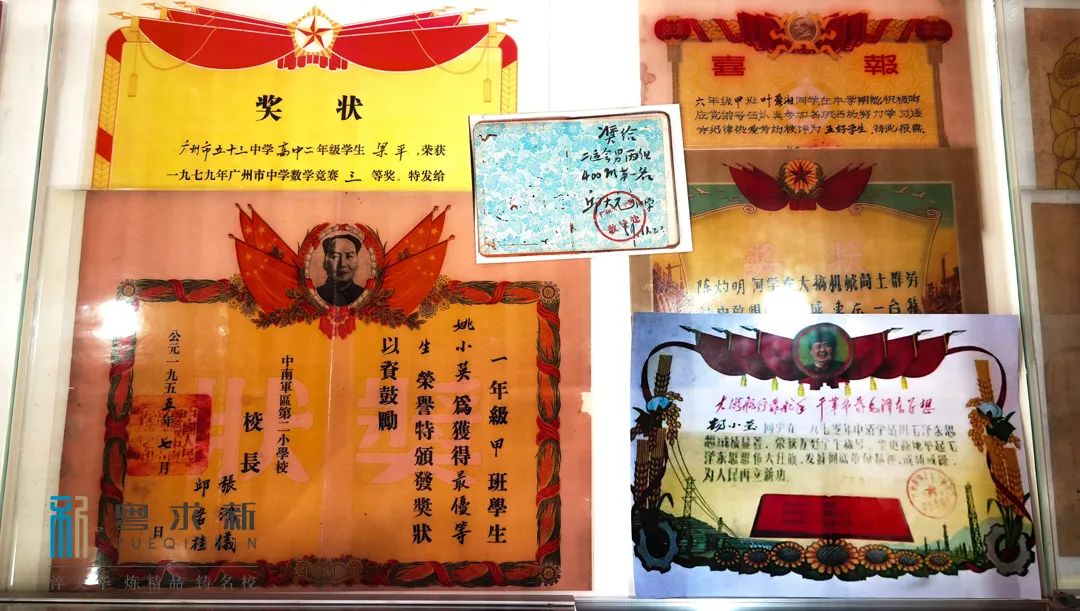 奖状
广州市五十三中学高中二年级学生 梁平,荣获
一九七九年广州市中学数学竞赛 三 等奖。特发给
奖给
二运会男丙组
400M第一名
喜報
六年级甲班 同学在本学期能积极响
应党的号召认真参加各项活动努力学习遵
守纪律 劳动被评为五好学生,特此报喜.
奖状
陈灼明 同学在大搞机械 土群劳
獎狀
一年級甲班學生
姚小英為獲得最優等
生榮譽特頒發獎狀
以資鼓勵
中南軍區第二小學校
校長
張 儀
邱 桂
公元一九五五年七月 日
大海航行靠舵手 干革命靠毛泽东思想
小英 同学在一九七零年中活学活用毛泽东思
想成绩显著,荣获五好学生称号, 更高地举起毛
泽东思想伟大红旗,发扬彻底革命精神,戒骄戒躁
为人民再立新功。
粤求新
YUEQIUXIN
炼精品 铸名校